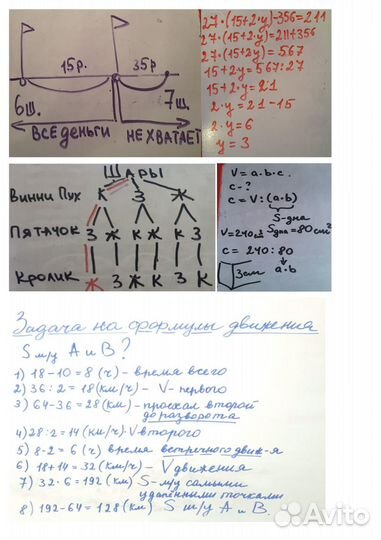 15р.
35р
6ш.
7ш.
ВСЕ ДЕНЬГИ
НЕ ХВАТАЕТ
27·(15+2·y)-356=211
27·(15+2·y)=211+356
27·(15+2y)=567
15+2y=567:27
15+2·y=21
2·y=21-15
2·y=6
y=3
ШАРЫ
ВИННИ ПУХ К З Ж
ПЯТАЧОК З Ж К Ж К З
КРОЛИК Ж З Ж К З К
V=a·b·c.
c-?
c=V:(a·b)
S-дна
V=240м3 Sдна=80см²
c=240:80
3см
a·b
Задача на формулы движения
S м/у A и B?
1) 18-10=8 (ч) - время всего
2) 36:2=18 (км/ч) - V-первого
3) 64-36=28 (км) - проехал второй
до разворота
4) 28:2=14 (км/ч)-V второго
5) 8-2=6 (ч) время встречного движ-я
6) 18+14=32 (км/ч) - V движения
7) 32·6=192 (км) S-м/у самыми
удалёнными точками
8) 192-64=128 (км) S м/у A и B.
Avito